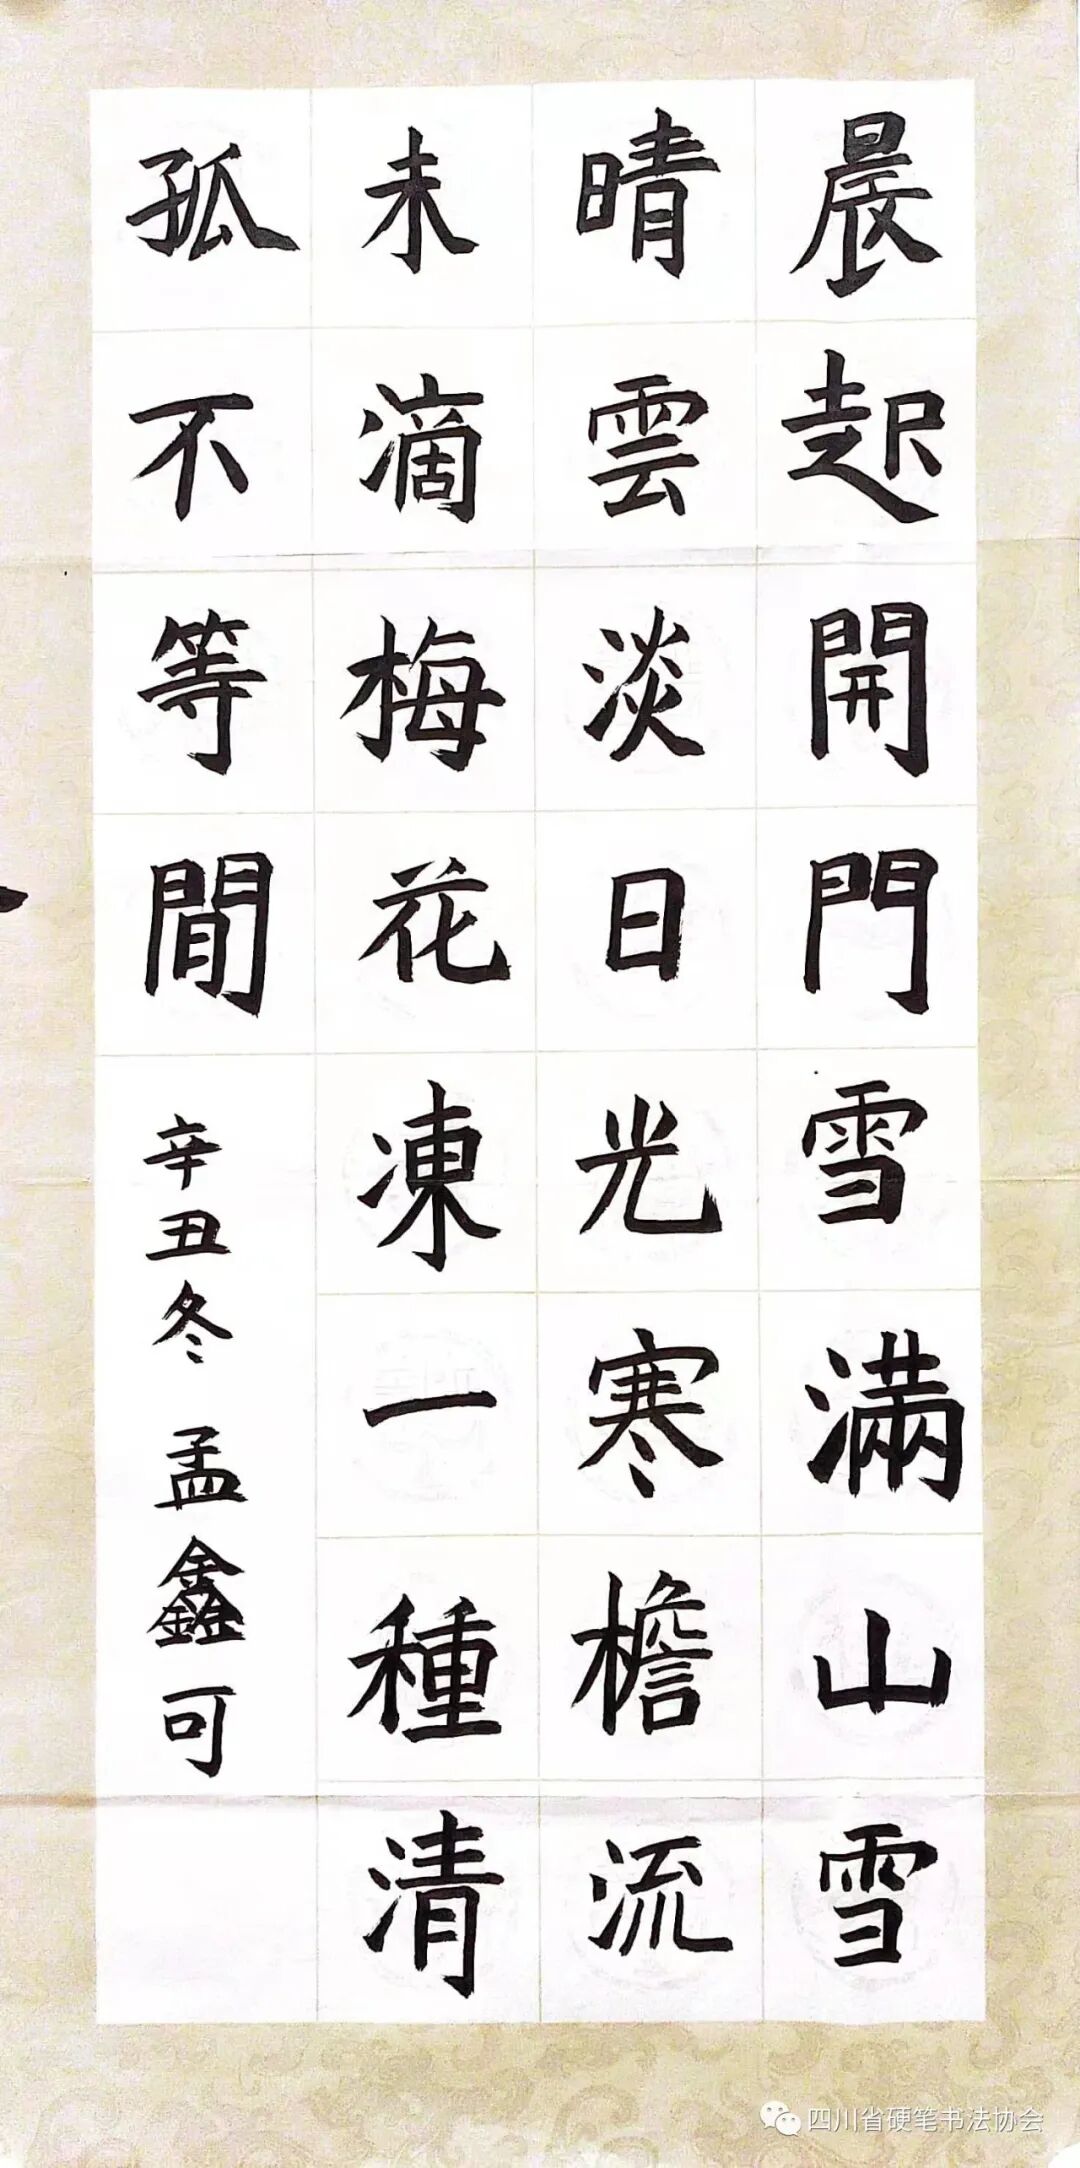 晨起開門雪滿山雪
晴雲淡日光寒檐流
未滴梅花凍一種清
孤不等間
辛丑冬 孟鑫可
四川省硬笔书法协会